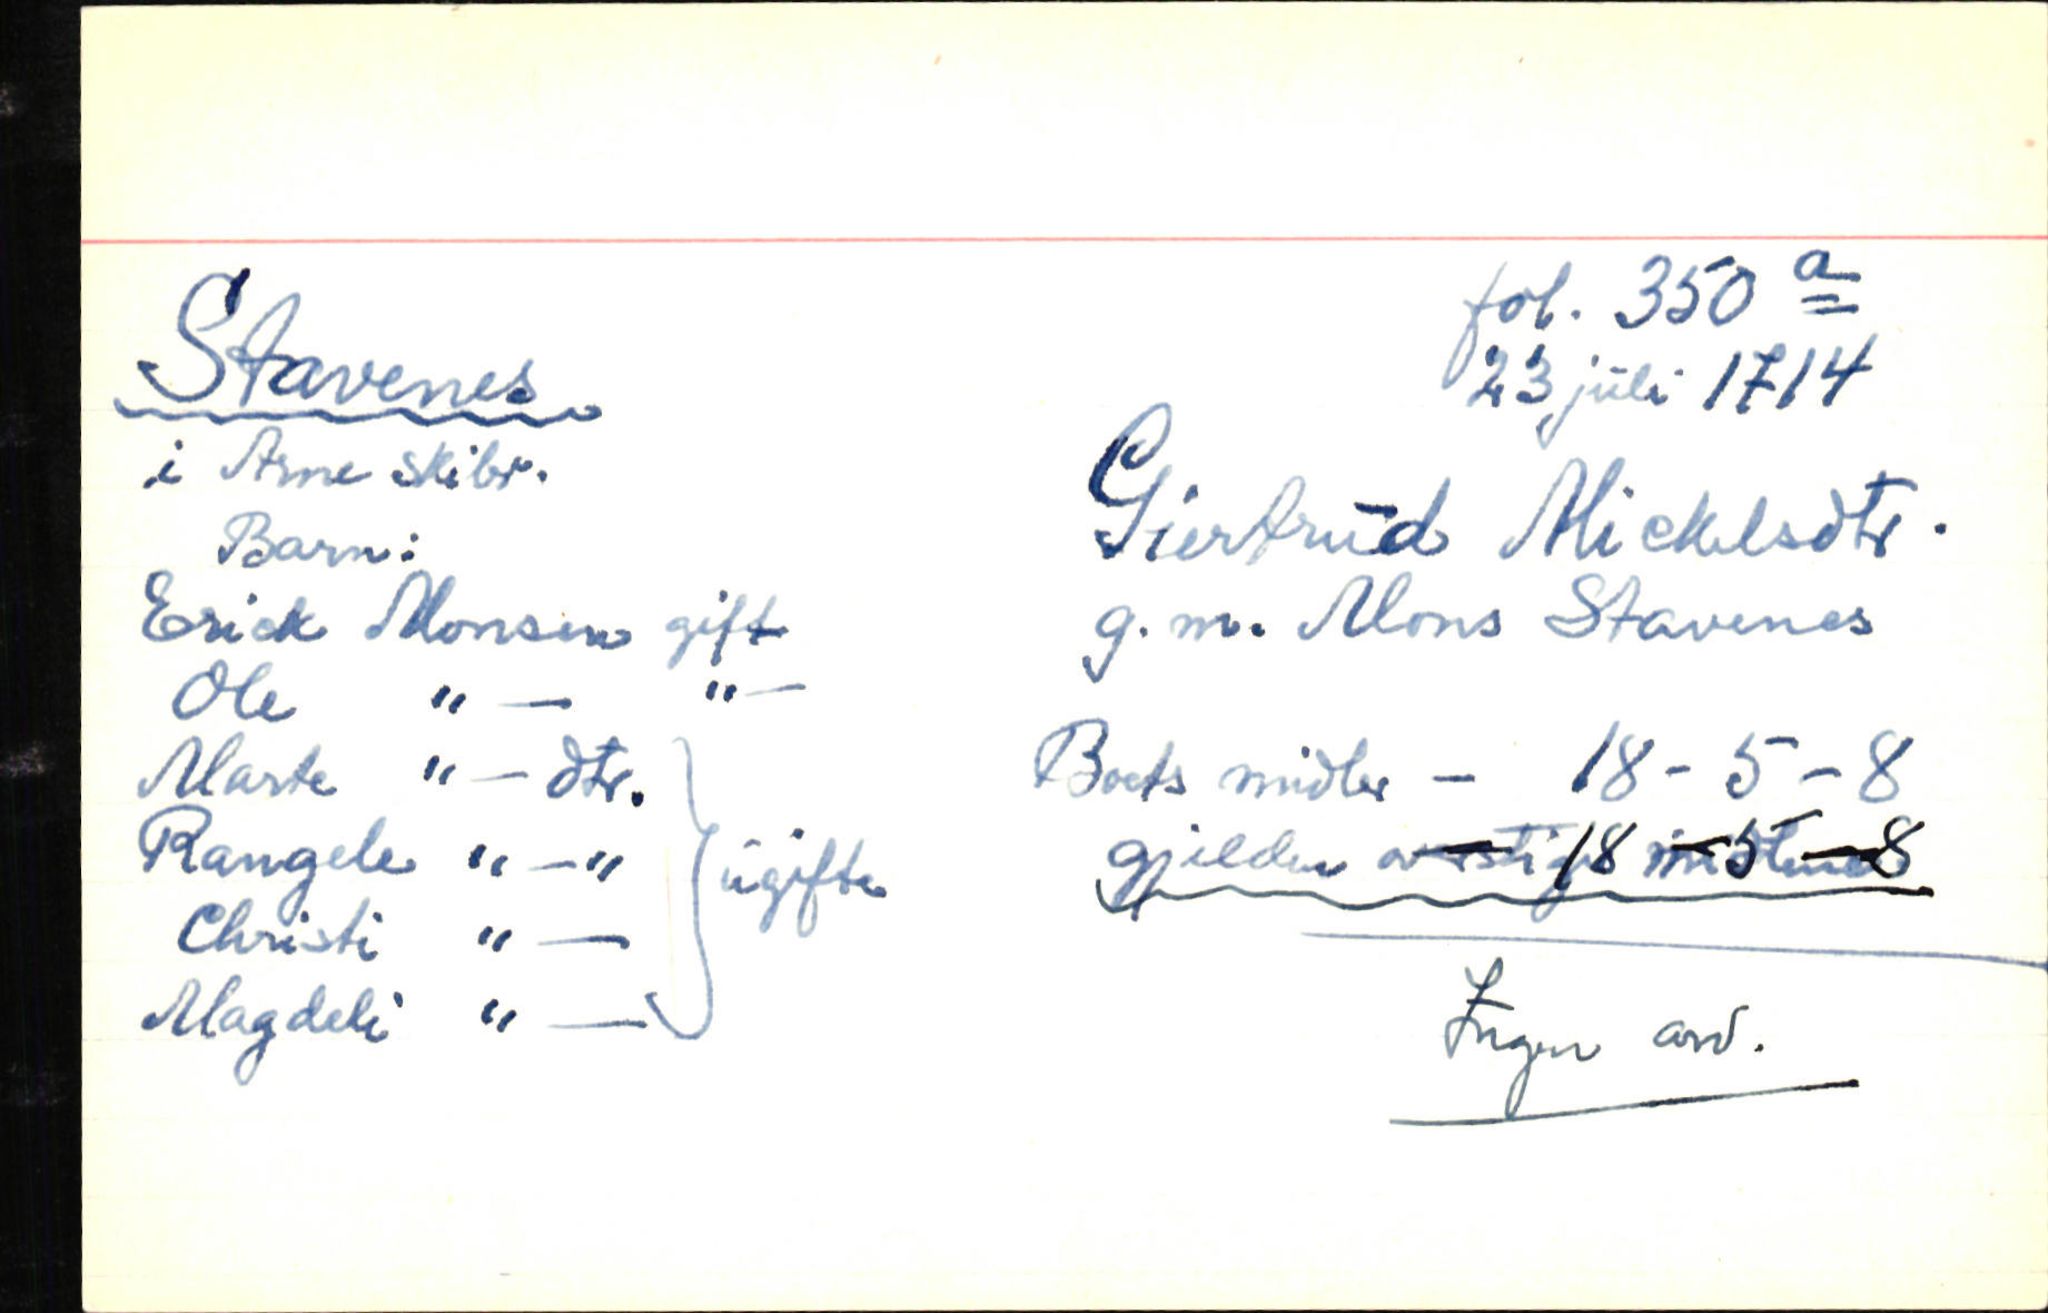 fol. 350 a
23 juli 1714
Stavenes
i Arne skibr.
Barn:
Erick Monsen gift
Ole " — " —
Marte " — dtr.
Rangele " — "
Christi " —
Magdeli " —
ugifte
Giertrud Mickelsdtr.
g. m. Mons Stavenes
Boets midler — 18 - 5 - 8
gjelden — 18 — 5 — 8
Ingen arv.